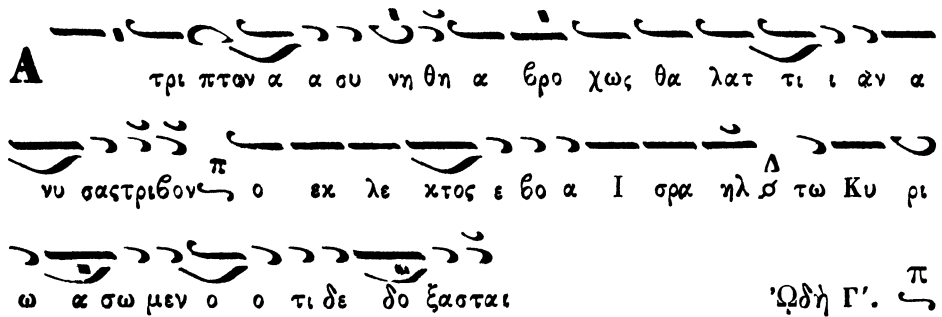 Α τρι πτον α α συ νη θη α βρο χως θα λατ τι ι αν α
νυ σας τρι βον π ο εκ λε κτος ε βο α Ι σρα ηλ Δ τω Κυ ρι
ω α σω μεν ο ο τι δε δο ξασται Ὠδὴ Γ΄. π